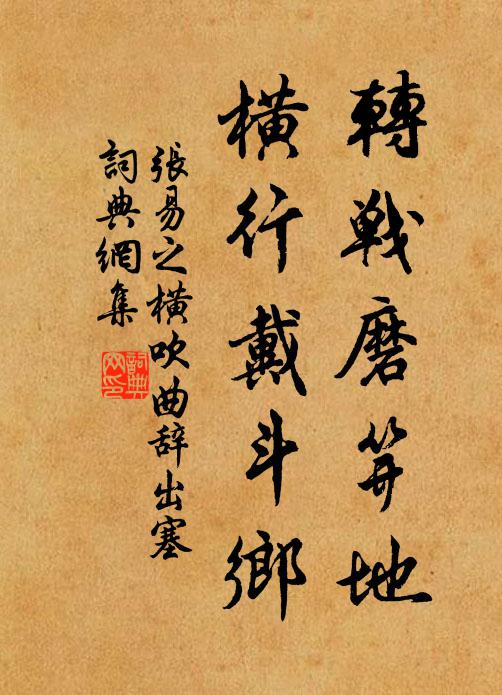 轉戰磨笄地
橫行戴斗鄉
張易之橫吹曲辞出塞
詞典網集
詞典网印